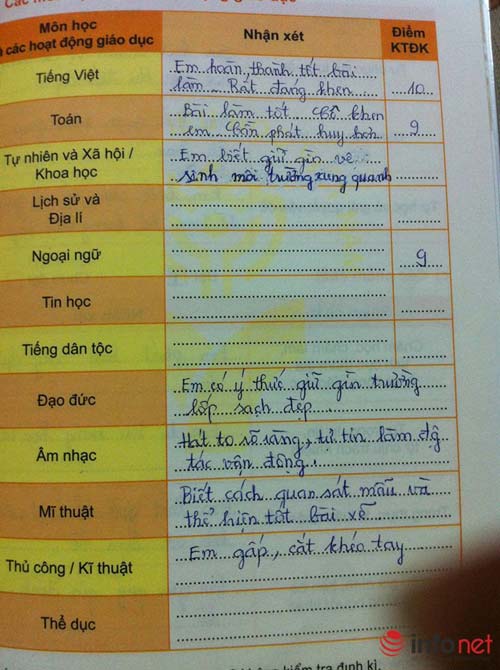 Môn học
các hoạt động giáo dục
Nhận xét
Điểm
KTĐK
Tiếng Việt
Em hoàn thành tốt bài
làm. Rất đáng khen
10
Toán
Bài làm tốt Cô khen
em Cần phát huy hơn
9
Tự nhiên và Xã hội /
Khoa học
Em biết giữ gìn vệ
sinh môi trường xung quanh
Lịch sử và
Địa lí
Ngoại ngữ
9
Tin học
Tiếng dân tộc
Đạo đức
Em có ý thức giữ gìn trường
lớp sạch đẹp.
Âm nhạc
Hát to rõ ràng, tự tin làm độ
tác vận động.
Mĩ thuật
Biết cách quan sát mẫu và
thể hiện tốt bài vẽ
Thủ công / Kĩ thuật
Em gấp, cắt khéo tay
Thể dục
kiểm tra định kì.
infonet